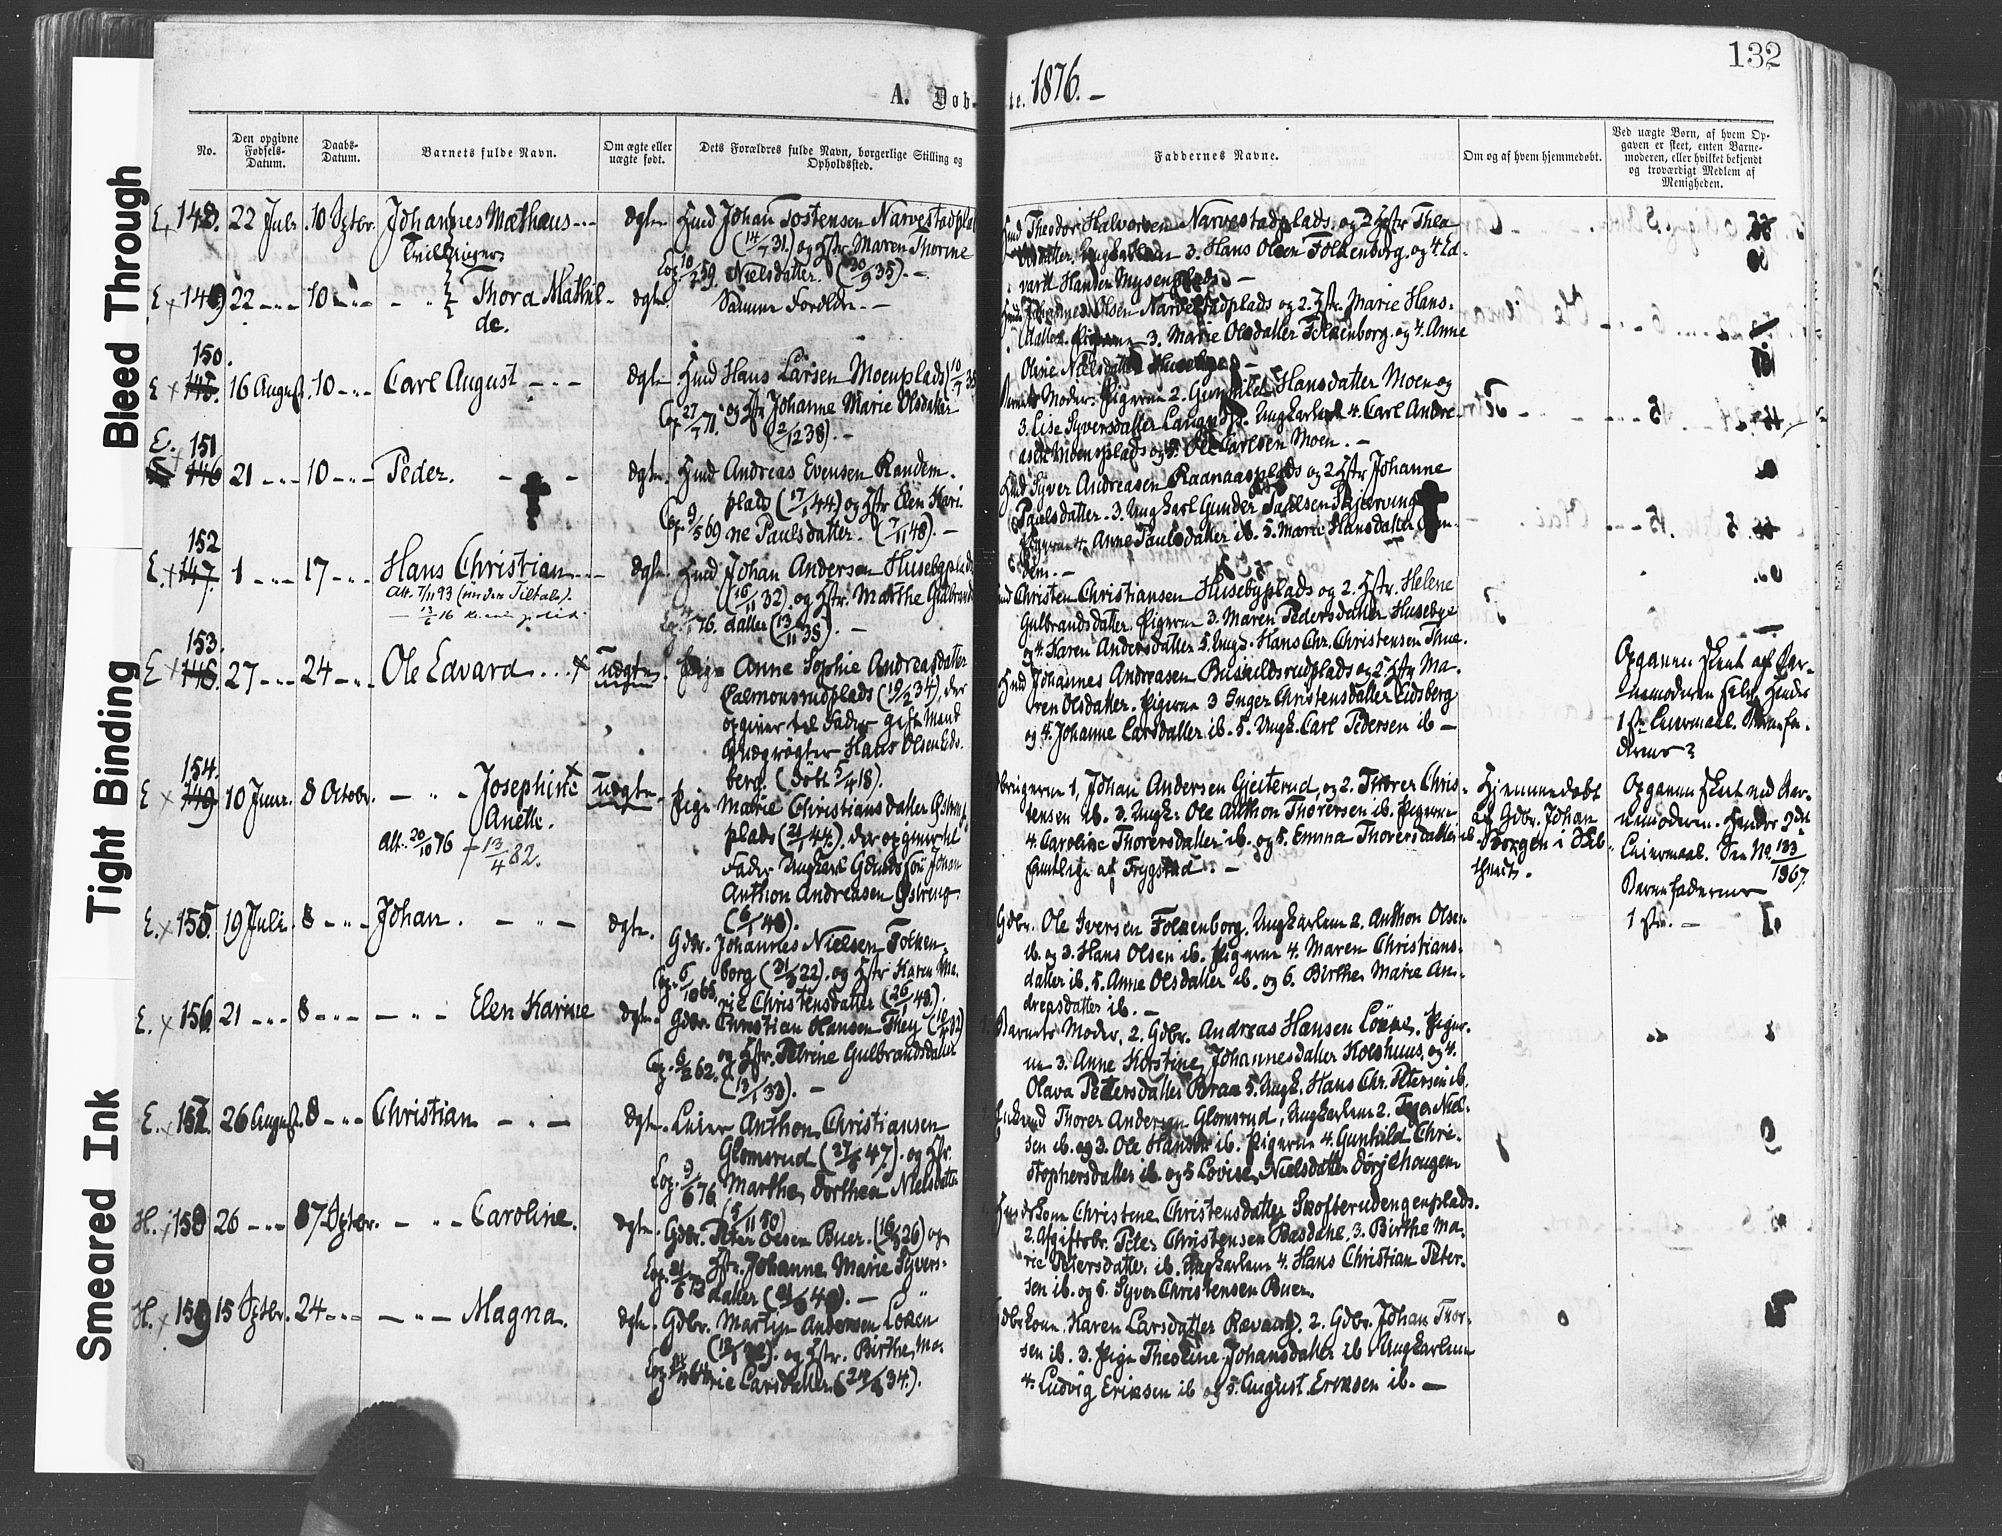 132
A. Døb-te. 1876.
Bleed Through
Tight Binding
Smeared Ink
No.
Den opgivne Fødsels-Datum.
Daabs-Datum.
Barnets fulde Navn.
Om ægte eller uægte født.
Dets Forældres fulde Navn, borgerlige Stilling og Opholdssted.
Faddernes Navne.
Om og af hvem hjemmedøbt.
Ved uægte Børn, af hvem Opgaven er skeet, enten Barnemoderen, eller hvilket bekjendt og troværdigt Medlem af Menigheden.
E. 148. 22 Juli. 10 Sptbr. Johannes Mathæus ægte
Tvillinger
Hmd Johan Tostensen Narvestadplads
(14/7 31.) og Hstr. Maren Thorine
Nielsdatter. (30/9 35). –
Hmd Theodor Halvorsen Narvestadplads, og 2 Hstr Thea
Olsdatter, Ungkarlene 3. Hans Olsen Folkenborg. og 4. Ed-
vard Hansen Mysenplads –
E x 149 22 10 Thora Mathil-
de. ægte
Samme Forældre –
Johannes Olsen Narvestadplads og 2. Hstr. Marie Hans-
datter. Pigerne 3. Marie Olsdatter Folkenborg. og 4. Anne
Oline Nielsdatter Huseby –
150.
E x 16 August. 10 Carl August ægte
Hmd Hans Larsen Moenplads
og Hstr Johanne Marie Olsdatter
(2/12 38). –
Barnets Moder. Pigerne 2. Gunhild Hansdatter Moen og
3. Lise Syversdatter 4. Carl Andre-
asen Moenplads og 5. Ole Carlsen Moen. –
E. 151
146 21 10 Peder. ægte
Hmd Andreas Evensen Randem-
plads (17/1 44) og Hstr Elen Kari-
ne Paulsdatter. (7/11 48). –
Hmd Syver Andreasen Raanaasplads og 2 Hstr Johanne
Paulsdatter. 3. Ungkarl Gunder Paulsen Skjerving
Pigerne 4. Anne Paulsdatter ib. 5. Marie Hansdatter Ran-
dem. –
152
E. x 147. 1 17 Hans Christian ægte
Att. 7/11 93
Hmd Johan Andersen Husebyplads
(16/11 32). og Hstr. Marthe Gulbrands
datter (13/11 38). –
Christen Christiansen Husebyplads og 2. Hstr. Helene
Gulbrandsdatter. Pigerne 3. Maren Pedersdatter Husebye
og 4. Karen Andersdatter 5. Ungk. Hans Chr. Christensen Thue.
153.
E x 148. 27 24 Ole Edvard uægte
Pige Anne Sophie Andreasdatter
Salmonsrudplads (19/2 34), der
opgiver til Fader gift Mand
Qvægrøgter Hans Olsen Eids-
berg. (født 5/4 18).
Hmd Johannes Andreasen Buskildsrudplads og 2. Hstr Ma-
ren Olsdatter. Pigerne 3 Inger Christensdatter Eidsberg
og 4. Johanne Larsdatter ib. 5. Ungk. Carl Pedersen ib –
Opgaven skeet af Bar-
nemoderen selv. Hendes
1ste Leiermaal. Barnefa-
derens?
154.
E x 149 10 Juni. 8 Octobr. Josephine
Anette. uægte
Att. 20/10 76 – 13/4 82.
Pige Marie Christiansdatter Østreng-
plads (21/1 44.). der opgiver til
Fader Ungkarl Gdmds Søn Johan
Anthon Andreasen Østreng.
(6/1 48).
1, Johan Andersen Gjeiterud, og 2. Thorer Chris-
tensen ib. 3. Ungk. Ole Anthon Thorersen ib. Pigerne
4. Caroline Thorersdatter ib. og 5. Emma Thorersdatter ib
samtlige af Frygstad. –
Hjemmedøbt
af Gdbr. Johan
Borgen i Skib-
thvedt.
Opgaven skeet ved Bar-
nemoderen. Hendes 2det
Leiermaal. See No. 133/1867.
Barnefaderens
1ste. –
E. x 155. 19 Juli. 8 Johan. ægte.
Gdbr. Johannes Nielsen Folken-
borg (31/5 22). og Hstr Karen Ma-
rie Christensdatter (26/1 48.).
Gdbr. Ole Iversen Folkenborg, Ungkarlene 2. Anthon Olsen
ib. og 3. Hans Olsen ib. Pigerne 4. Maren Christians-
datter ib. 5. Anne Olsdatter ib. og 6. Birthe Marie An-
dreasdatter ib. –
E. x 156. 21 8 Elen Karine ægte.
Gdbr. Christian Hansen They
og Hstr. Petrine Gulbrandsdatter
(13/1 33). –
Barnets Moder, 2. Gdbr. Andreas Hansen Løkke. Piger-
ne 3. Anne Kirstine Johannesdatter Kolshuus, og 4.
Olava Petersdatter Braa 5. Ungk. Hans Chr. Petersen ib.
E. x 157. 26 August. 8 Christian ægte.
Leier Anthon Christiansen
Glomsrud og Hstr.
Marthe Dorthea Nielsdatter
(5/11 50)
Thorer Andersen Glomsrud, Ungkarlene 2. Niel-
sen ib. og 3. Ole Hansen ib. Pigerne 4. Gunhild Chri-
stophersdatter ib. og 5 Lovise Nielsdatter
H. x 158 26 Sptbr. Caroline. ægte
Gdbr. Peter Olsen Buer. og
Hstr. Johanne Marie Syvers-
datter –
Christene Christensdatter Skofterudengenplads.
2. Afgiftsbr. Peter Christensen Basdahl, 3. Birthe Ma-
rie Petersdatter, ib. Ungkarlene 4. Hans Christian Peter-
sen ib. og 5. Syver Christensen Buer.
H. x 159 15 Sptbr. 24 Magna. ægte.
Gdbr. Martin Andersen Løken
og Hstr. Birthe Ma-
rie Larsdatter.
Gdbrkone Karen Larsdatter Ravaag. 2. Gdbr. Johan Thor-
sen ib. 3. Pige Thestine Johansdatter ib. Ungkarlene
4. Ludvig Eriksen ib og 5. August Eriksen ib. –